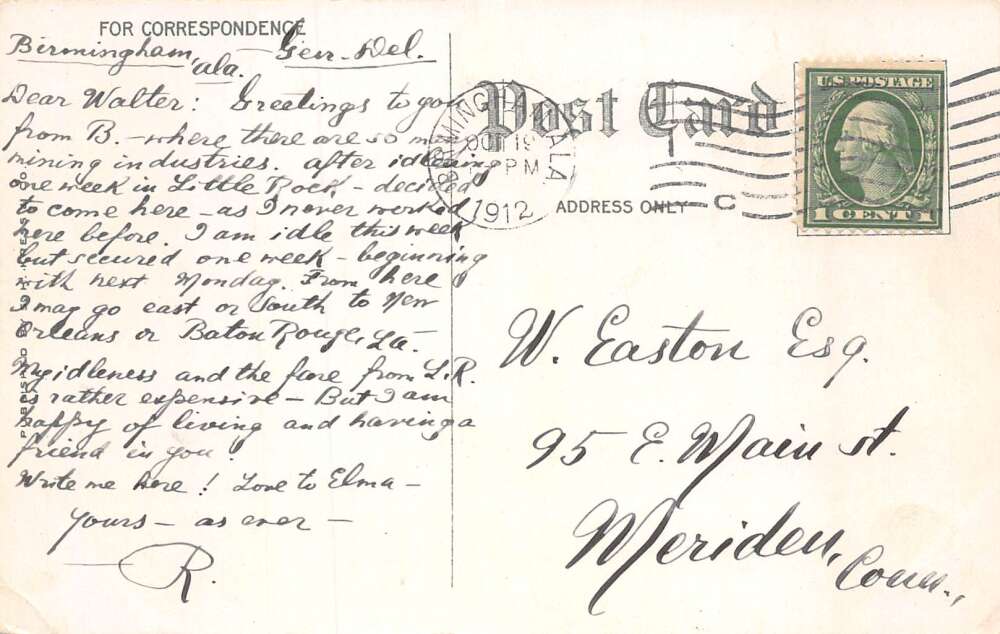 FOR CORRESPONDENCE
Birmingham, Ala. — Gen. Del.
Dear Walter: Greetings to you
from B. — where there are so
mining industries. After idleing
one week in Little Rock — decided
to come here — as I never worked
here before. I am idle this week
but secured one week — beginning
with next Monday. From here
I may go east or South to New
Orleans or Baton Rouge, La. —
My idleness and the fare from L.R.
is rather expensive — But I am
happy of living and having a
friend in you!
Write me here! Love to Elma —
Yours — as ever —
R.
Post Card
BIRMINGHAM ALA
OCT 19
PM
1912
ADDRESS ONLY
C
U.S. POSTAGE
1 CENT 1
W. Easton Esq.
95 E. Main st.
Meriden,
Conn.,